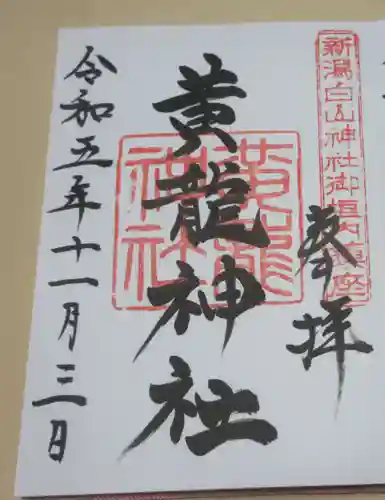 新潟白山神社御垣内鎮座
奉拝
黄龍神社
黄龍神社
令和五年十一月三日